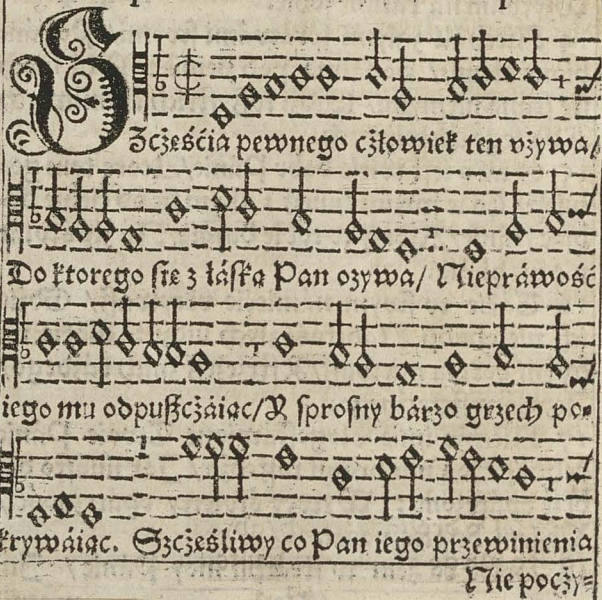 Szcżęścia pewnego cżłowiek ten vżywa/
Do ktorego sie z łáską Pan ozywa/ Niepráwość
iego mu odpuszcżáiąc/ Y sprosny bárzo grzech po-
krywáiąc. Szcżęśliwy co Pan iego przewinienia
Nie pocży-